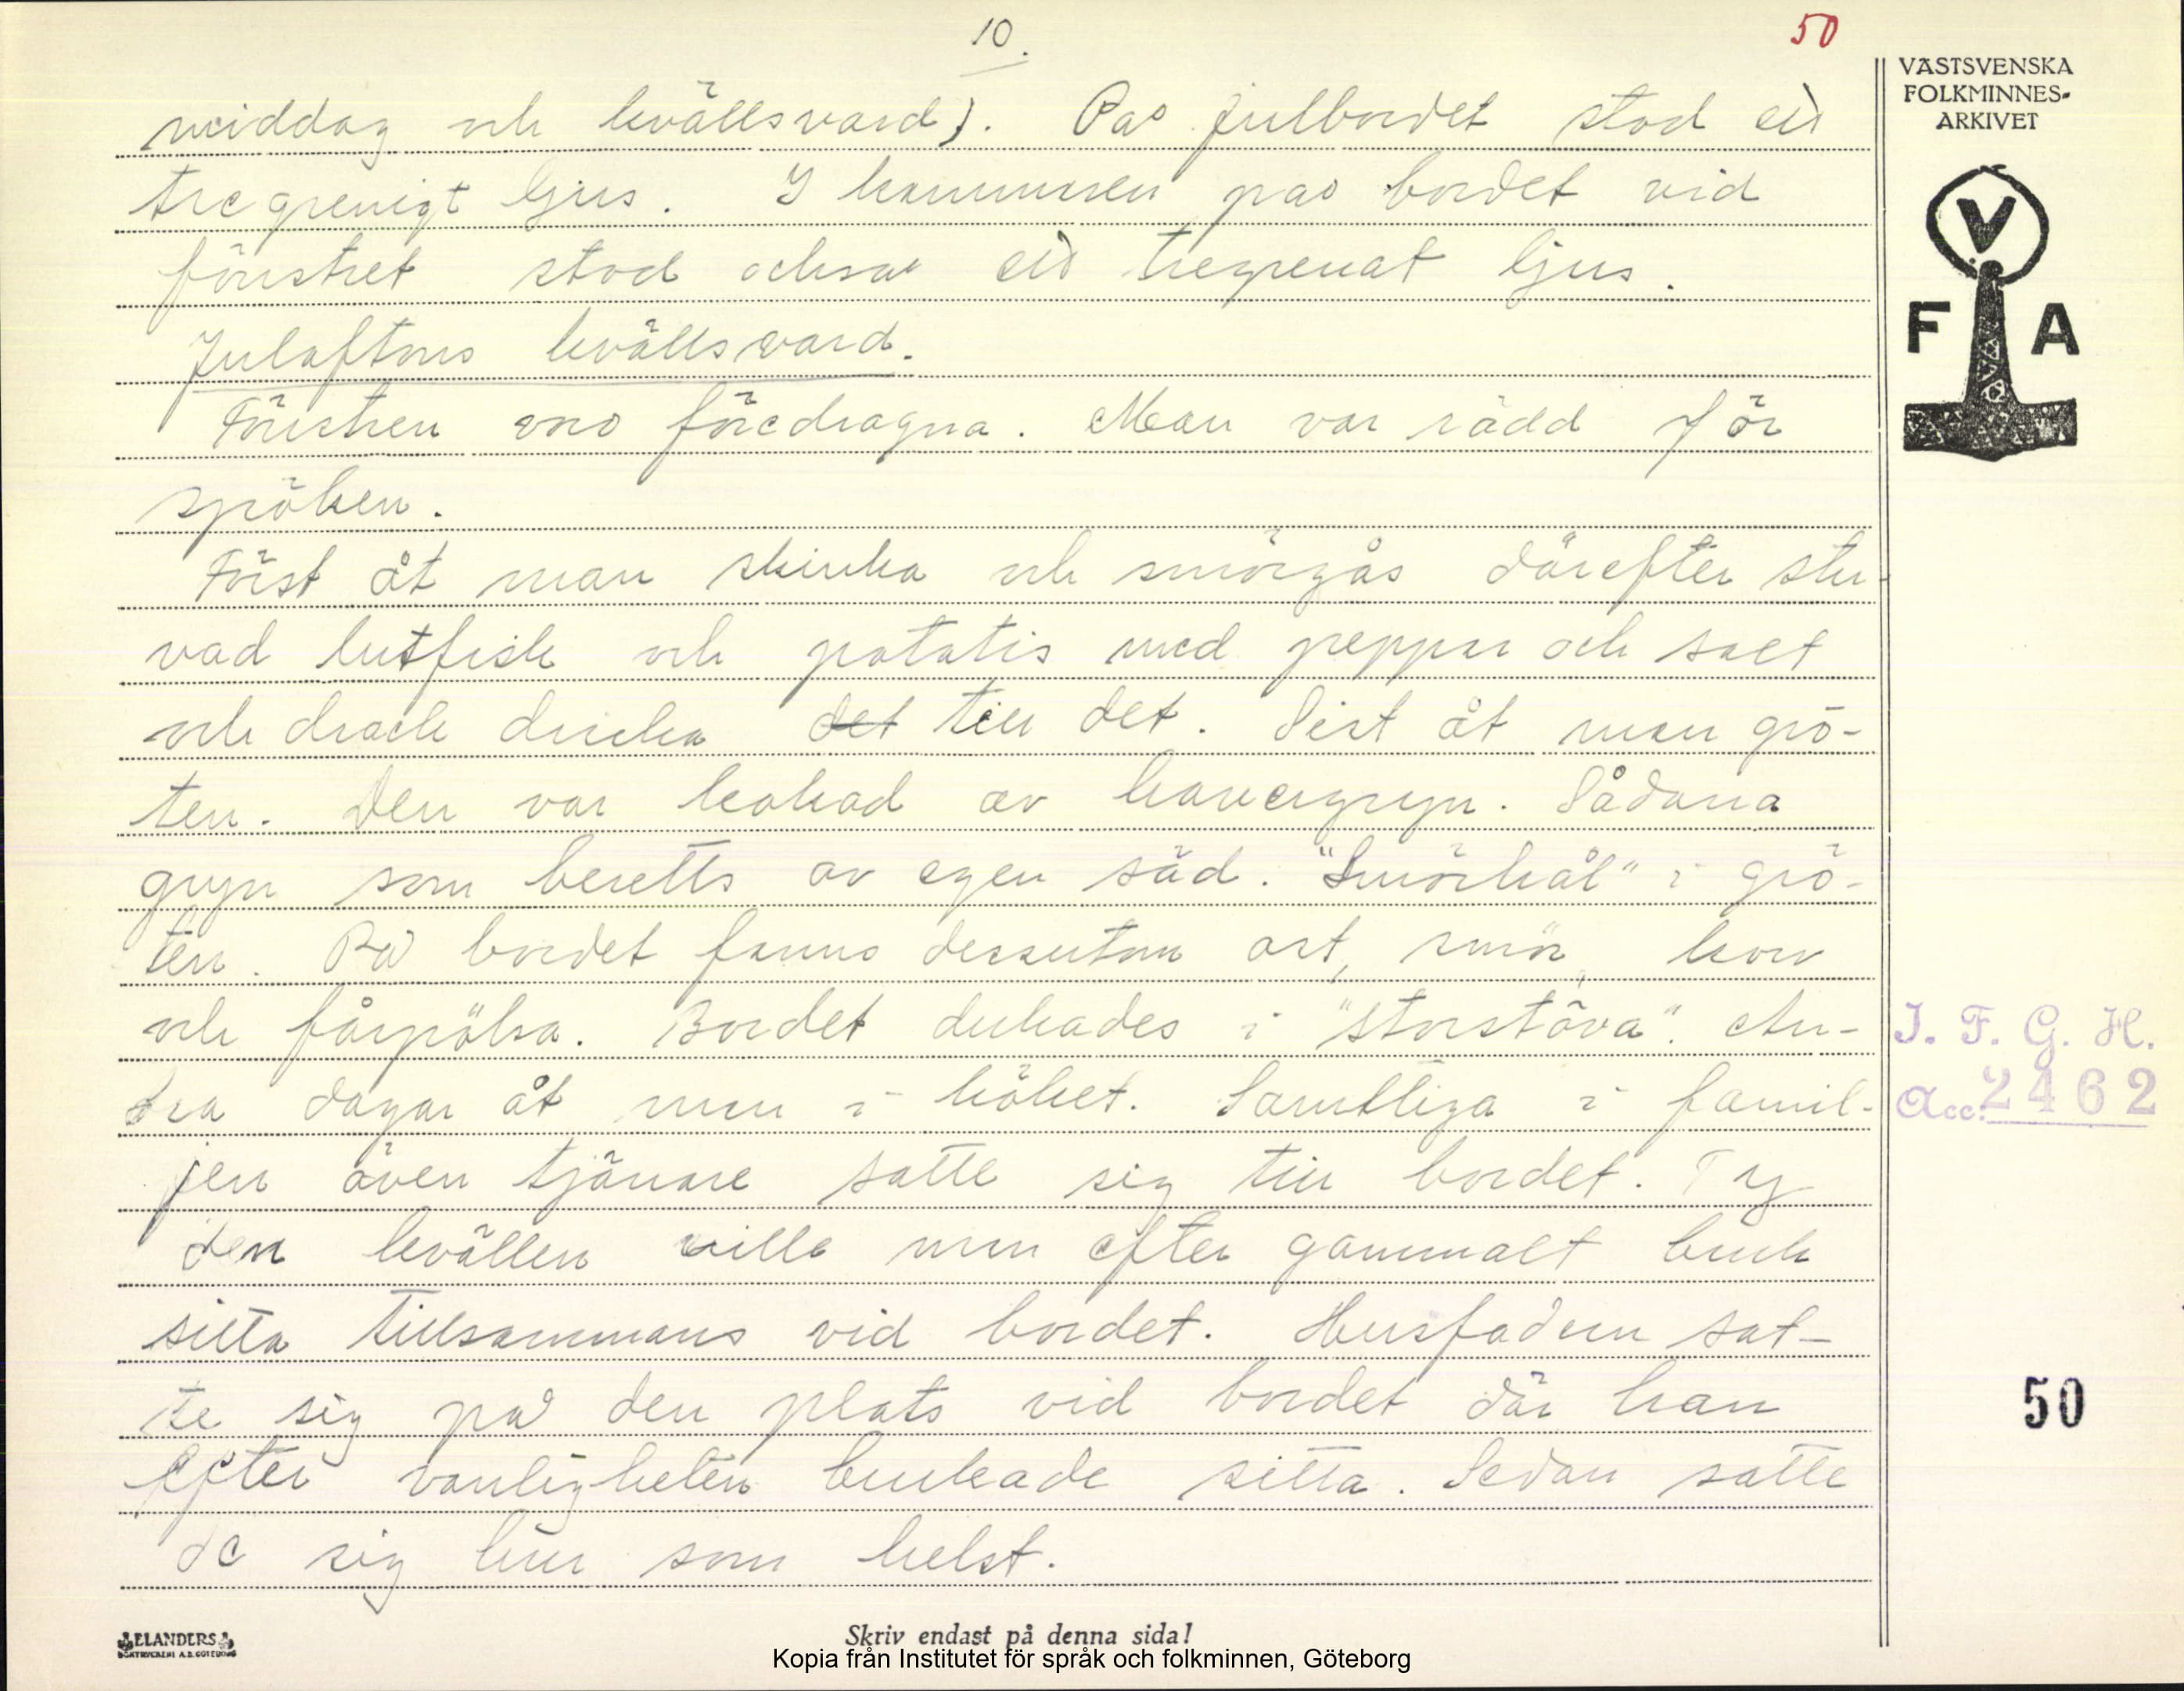 10.
50
middag och kvällsvard). På julbordet stod ett
tregrenigt ljus. I kammaren på bordet vid
fönstret stod också ett tregrenat ljus.
Julaftons kvällsvard.
Fönstren voro fördragna. Man var rädd för
spöken.
Först åt man skinka och smörgås därefter stu-
vad lutfisk och potatis med peppar och salt
och drack dricka det till det. Sist åt man grö-
ten. Den var kokad av havregryn. Sådana
gryn som beretts av egen säd. "Smörhål" i grö-
ten. På bordet fanns dessutom ost, smör, korv
och fårpölsa. Bordet dukades i "storstöva". An-
dra dagar åt man i köket. Samtliga i famil-
jen även tjänare satte sig till bordet. Ty
den kvällen ville man efter gammalt bruk
sitta tillsammans vid bordet. Husfadern sat-
te sig på den plats vid bordet där han
efter vanligheten brukade sitta. Sedan satte
de sig hur som helst.
VÄSTSVENSKA
FOLKMINNES-
ARKIVET
V
F A
I. F. G. H.
Acc: 2462
50
ELANDERS
BOKTRYCKERI A.B. GÖTEBORG
Skriv endast på denna sida!
Kopia från Institutet för språk och folkminnen, Göteborg